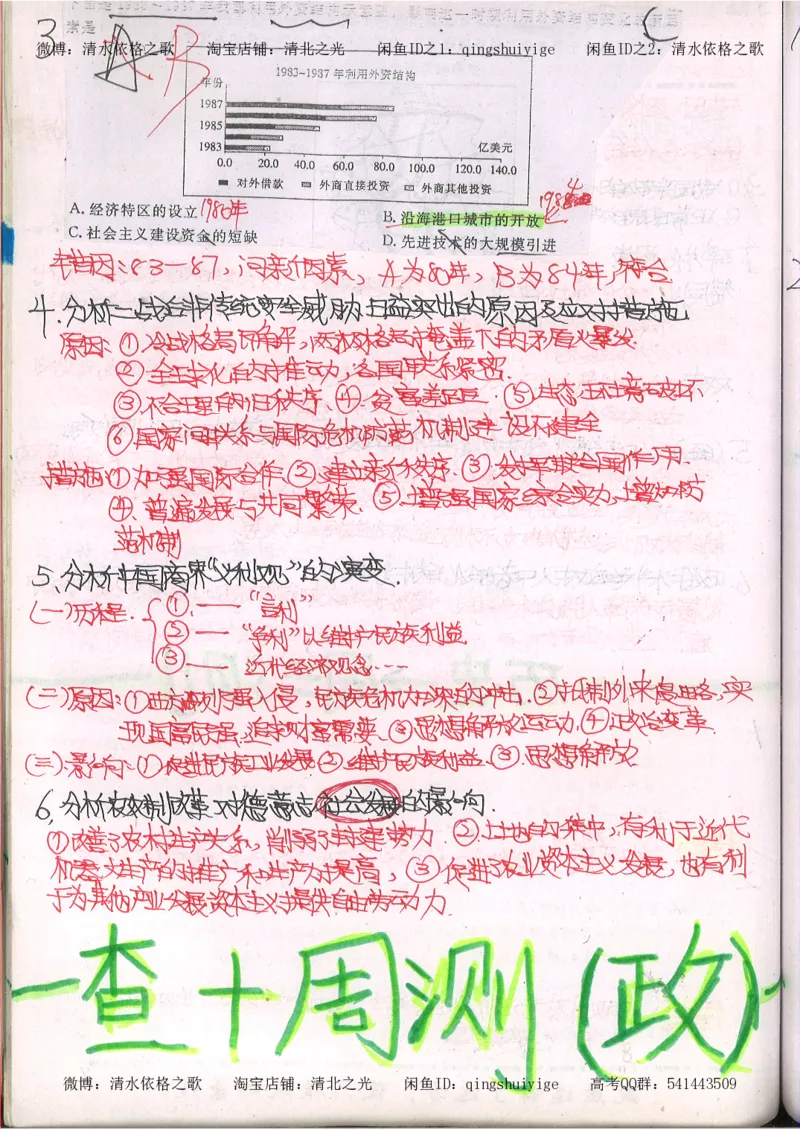 3
微博：清水依格之歌 淘宝店铺：清北之光 闲鱼ID之1：qingshuiyige 闲鱼ID之2：清水依格之歌
素是
A B
1983~1987年利用外资结构
年份
1987
1985
1983
亿美元
0.0 20.0 40.0 60.0 80.0 100.0 120.0 140.0
对外借款 外商直接投资 外商其他投资
A.经济特区的设立 1980年
B.沿海港口城市的开放 1984
C.社会主义建设资金的短缺
D.先进技术的大规模引进
错因：83—87，问新因素，A为80年，B为84年，符合
4.分析二战后非传统安全威胁日益突出的原因及应对措施
原因：①冷战格局瓦解，两极格局掩盖下的矛盾火爆发.
②全球化的推动，各国联系紧密.
③不合理的旧秩序 ④贫富差距 ⑤生态环境破坏
⑥国家间关系与国际危机防范机制建设不健全
措施：①加强国际合作 ②建立新秩序 ③发挥联合国作用
④普遍发展与共同繁荣 ⑤增强国家综合实力，增加防
范机制
5.分析中国商界“义利观”的演变.
(一)历程：①——“言利”
②——“争利”以维护民族利益
③——近代经济观念……
(二)原因：①西方侵入，民族危机加深的冲击 ②抵制外来侵略，实
现国富民强，追求财富需要 ③思想解放运动 ④政治变革
(三)影响：①促进民族工业发展 ②维护民族利益 ③思想解放
6.分析农奴制改革对德意志社会发展的影响.
①改善了农村生产关系，削弱了封建势力 ②土地的集中，有利于近代
机器大生产的推广和生产力提高，③促进了农业资本主义发展，也有利
于为其他产业发展资本主义提供自由劳动力.
一查十周测(政)
微博：清水依格之歌 淘宝店铺：清北之光 闲鱼ID：qingshuiyige 高考QQ群：541443509